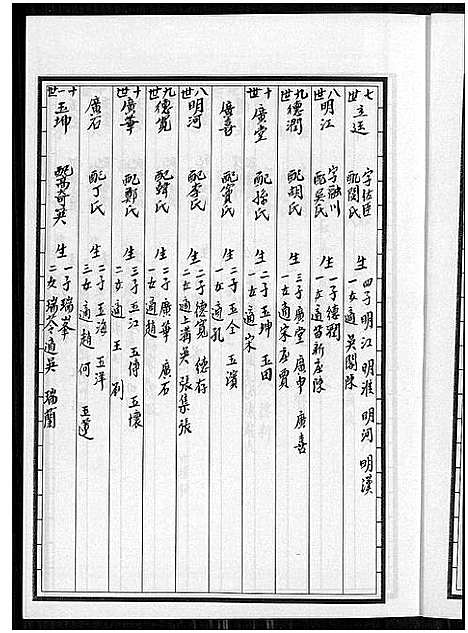 七世 立廷 字佐臣 配閻氏 生 四子 明江 明淮 明河 明漢 一女適吳閣陳
八世 明江 字融川 配吳氏 生 一子 德潤 一女適苗新庄陳
九世 德潤 配胡氏 生 三子 廣堂 廣申 廣喜 一女適宋庄賈
十世 廣堂 配孫氏 生 二子 玉坤 玉田 一女適宋
廣喜 配賓氏 生 二子 玉全 玉濱 一女適孔
八世 明河 配李氏 生 二子 德寬 德存 二女適溝吳 張集張
九世 德寬 配韓氏 生 二子 廣華 廣石 一女適趙
十世 廣華 配鄭氏 生 三子 玉江 玉傳 玉懷 二女適王 劉
廣石 配丁氏 生 二子 玉海 玉洋 三女適趙 何 玉蓮
十一世 玉坤 配高奇英 生 一子 瑞峯 二女 瑞苓適吳 瑞蘭